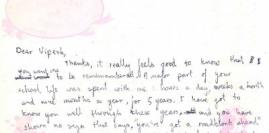 Dear Vipesh,
Thanks, it really feels good to know that
you want me to be remembered. A major part of your
school life was spent with me : hours a day, weeks a month
and nine months a year, for 5 years. I have got to
know you well through these years, and you have
shown me sign that says, you've got a